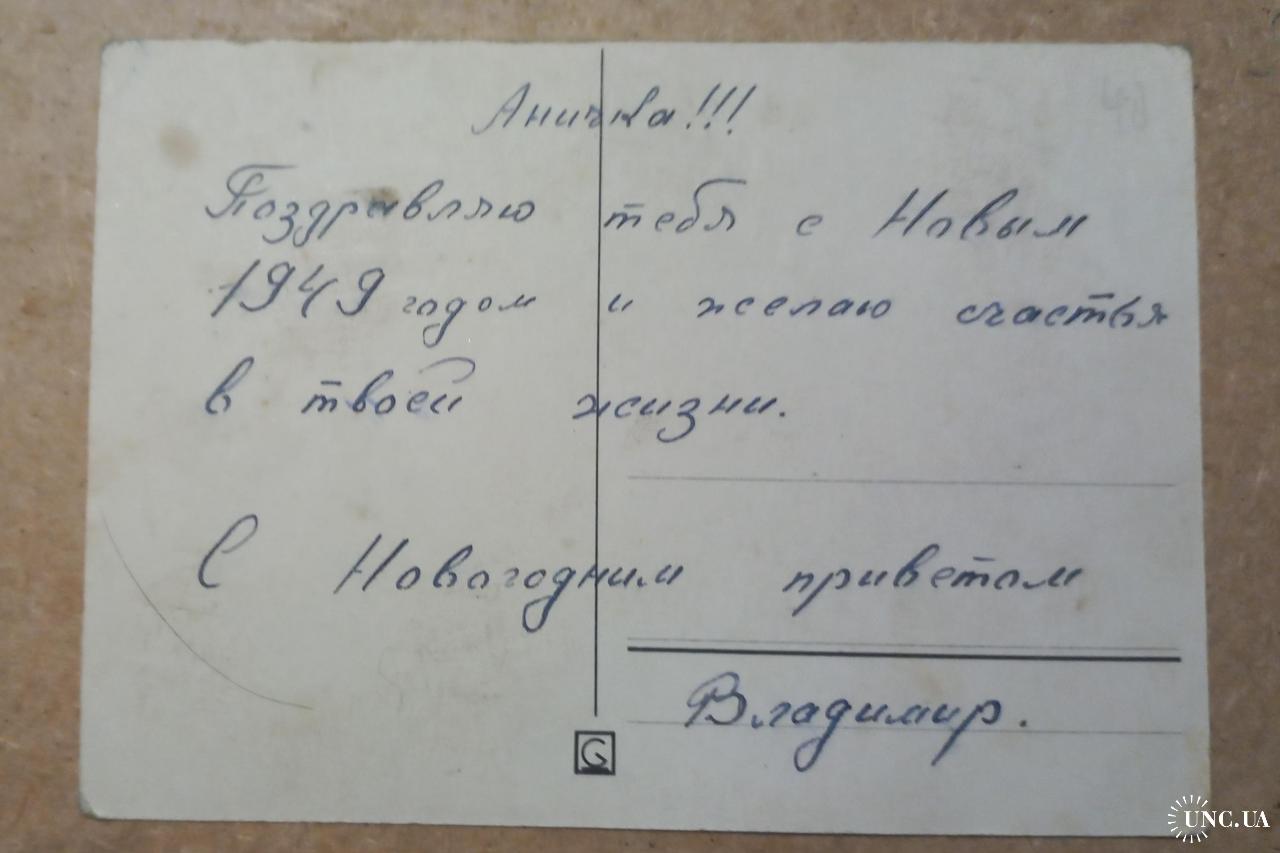 Аничка!!!
Поздравляю тебя с Новым
1949 годом и желаю счастья
в твоей жизни.
С Новогодним приветом
Владимир.
G
UNC.UA